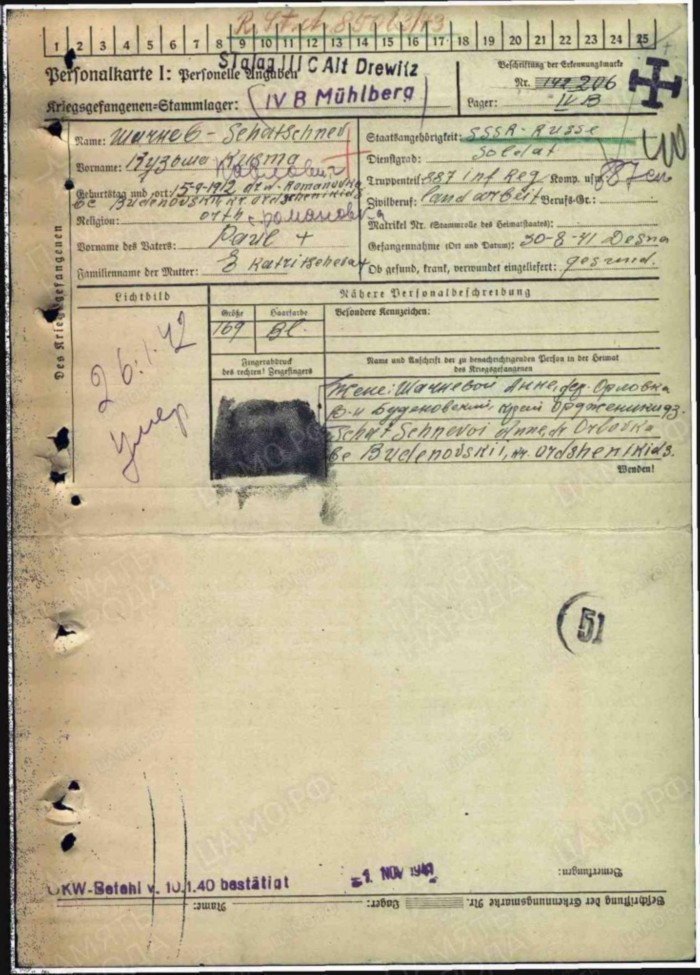 R.St.
1 2 3 4 5 6 7 8 9 10 11 12 13 14 15 16 17 18 19 20 21 22 23 24 25
Stalag III C Alt Drewitz
Personalkarte I: Personelle Angaben
Kriegsgefangenen-Stammlager: (IV B Mühlberg)
Beschriftung der Erkennungsmarke
Nr. 142206
Lager: IV B
Des Kriegsgefangenen
Name: Шачнев - Schatschnev
Vorname: Кузьма Kusma
Павлович
Geburtstag und -ort: 15-9-1912 Romanovka
be Budenovskii, kr. Ordschenikids
Religion: orth. Романовка
Vorname des Vaters: Pavel +
Familienname der Mutter:
Staatsangehörigkeit: SSSR-Russe
Dienstgrad: Soldat
Truppenteil: 887 Inf Reg. Komp. usw.: 887 сп
Zivilberuf: Landarbeit Berufs-Gr.:
Matrikel Nr. (Stammrolle des Heimatstaates):
Gefangennahme (Ort und Datum): 30-8-41 Desna
Ob gesund, krank, verwundet eingeliefert: gesund.
Lichtbild
Nähere Personalbeschreibung
Größe
Haarfarbe
Besondere Kennzeichen:
169
Bl.
Fingerabdruck
des rechten! Zeigefingers
Name und Anschrift der zu benachrichtigenden Person in der Heimat
des Kriegsgefangenen
26.1.42
умер
Жене: Шачневой Анне, дер. Орловка
р-н Буденовский, край Орджоникидз.
Schatschnevoi Anne, dr Orlovka
be Budenovskii, kr. Ordshenikids.
Wenden!
51
Bemerkungen:
OKW-Befehl v. 10.1.40 bestätigt
1. NOV 1941
Beschriftung der Erkennungsmarke Nr. Lager: Name: